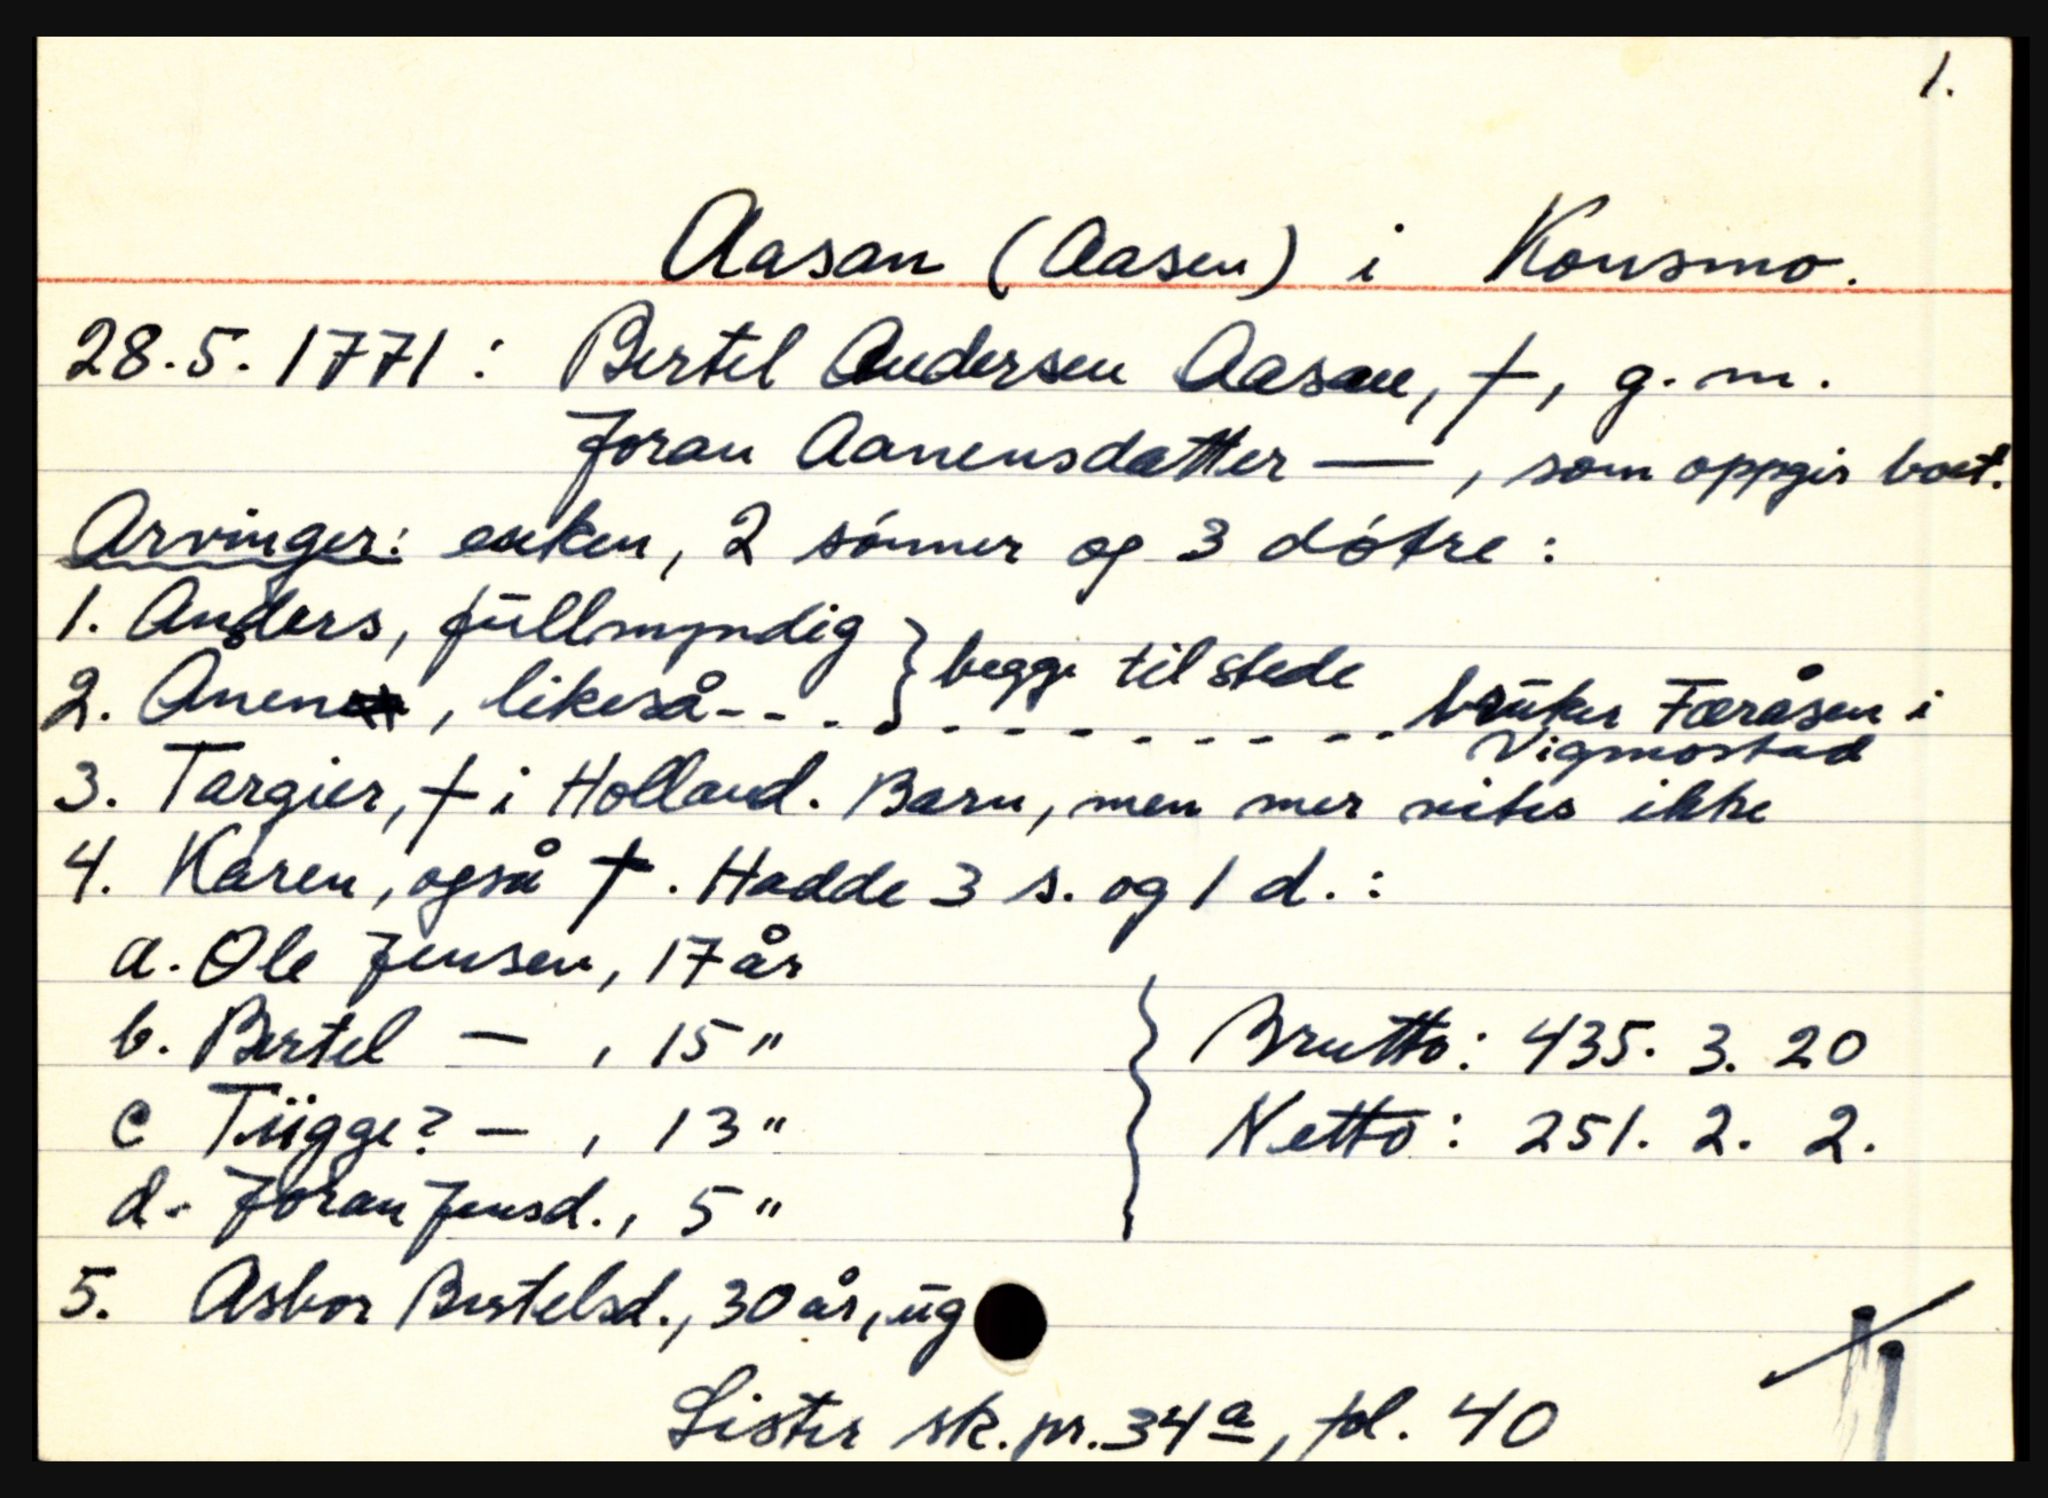 1.
Aasan (Aasen) i Konsmo.
28.5.1771: Bertel Andersen Aasan, †, g.m.
Joran Aanensdatter —, som oppgir boet.
Arvinger: enken, 2 sønner og 3 døtre:
1. Anders, fullmyndig } begge tilstede
2. Ånen, likeså - - - - - - - - - - - bruker Færåsen i
Vigmostad
3. Targier, † i Holland. Barn, men mer vites ikke
4. Karen, også †. Hadde 3 s. og 1 d.:
a. Ole Jensen, 17 år
b. Bertel — , 15 " } Brutto: 435. 3. 20
c Tügge? — , 13 " Netto: 251. 2. 2.
d. Joran Jensd., 5 "
5. Asbor Bertelsd., 30 år, ug
Lister sk.pr. 34a, fol. 40